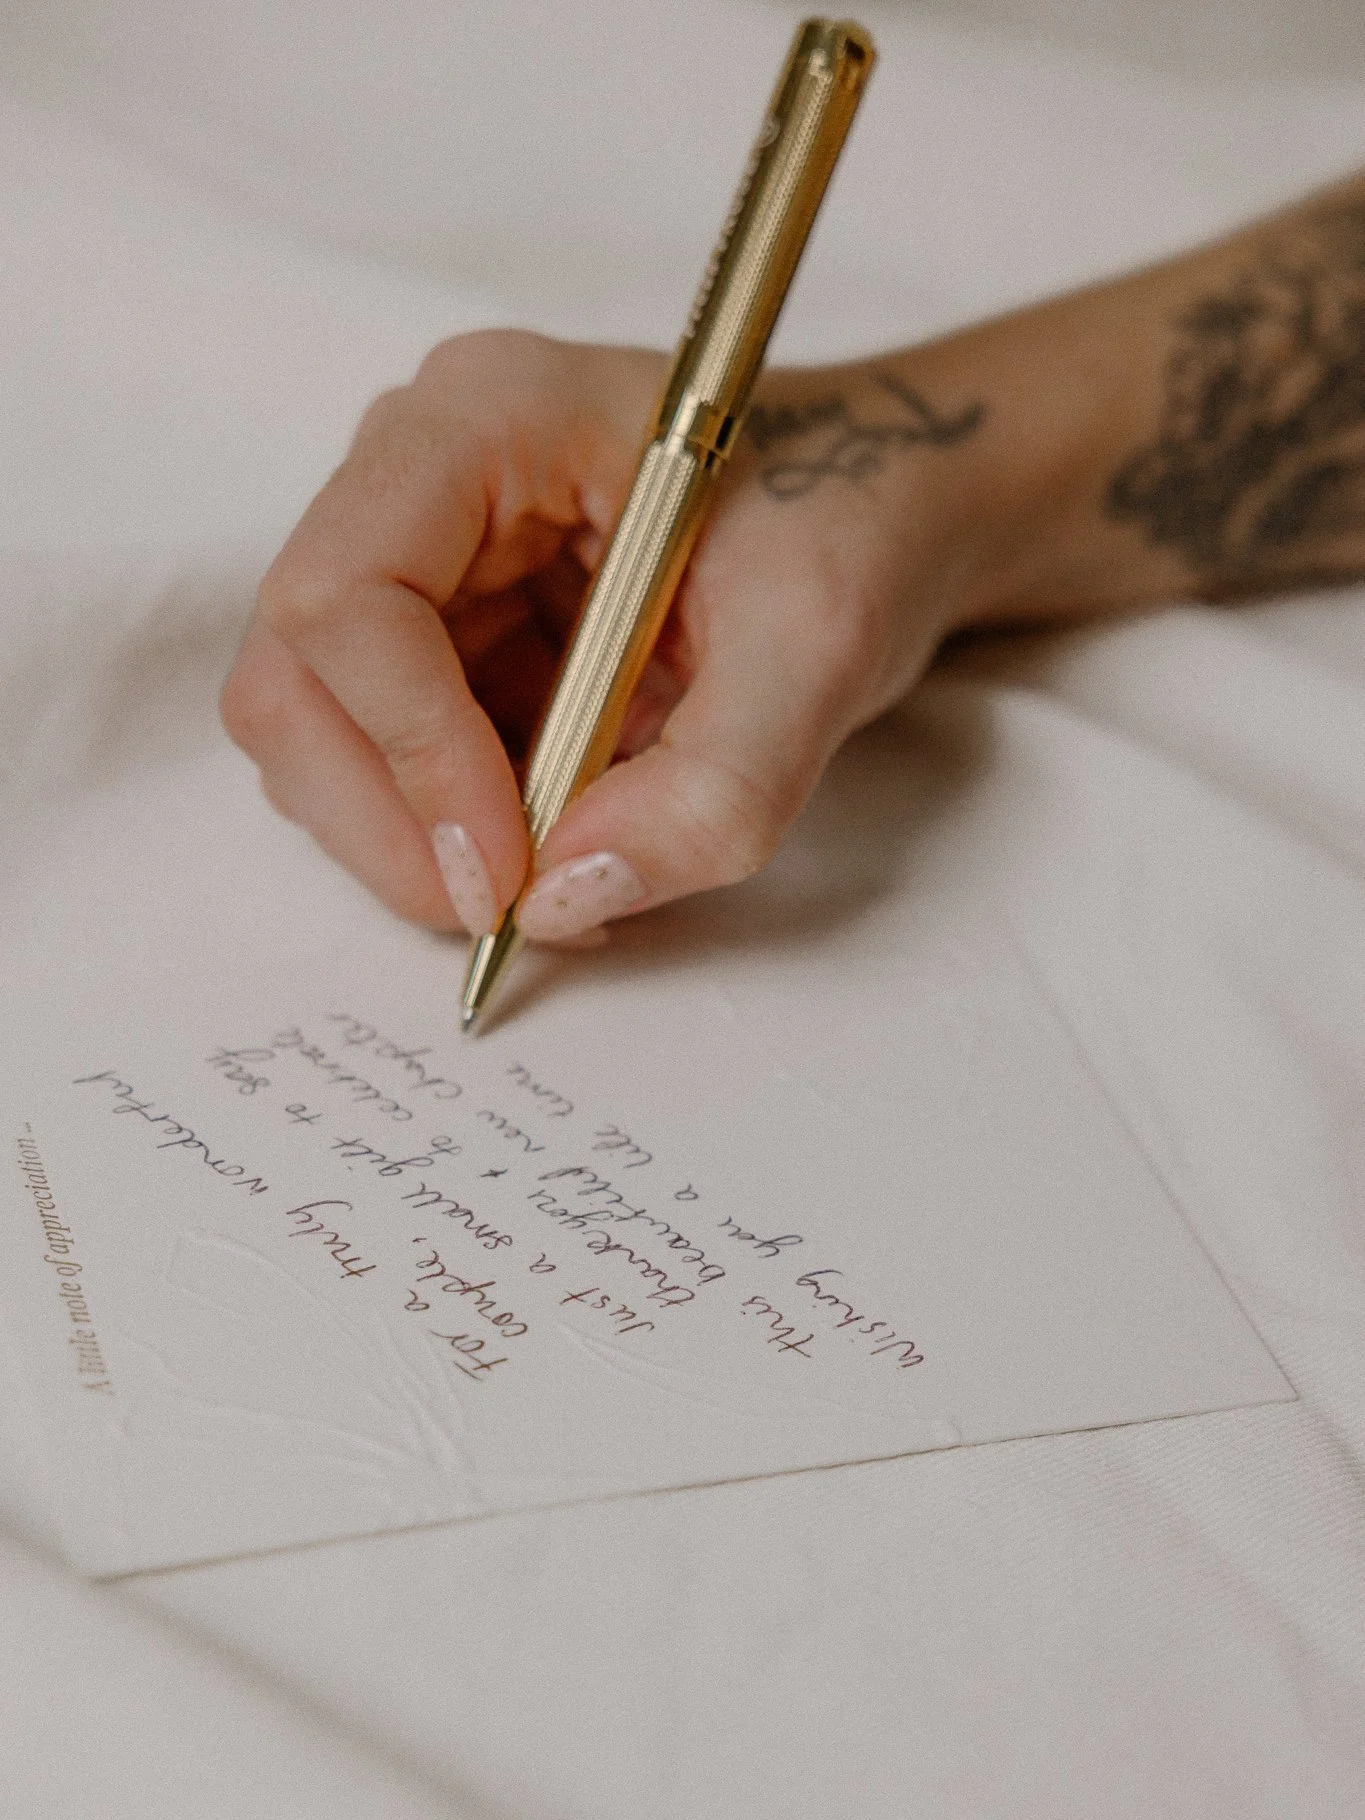 A little note of appreciation...
For a truly wonderful
couple,
Just a small gift to say
thank you + to celebrate
this beautiful new chapter
Wishing you a life time